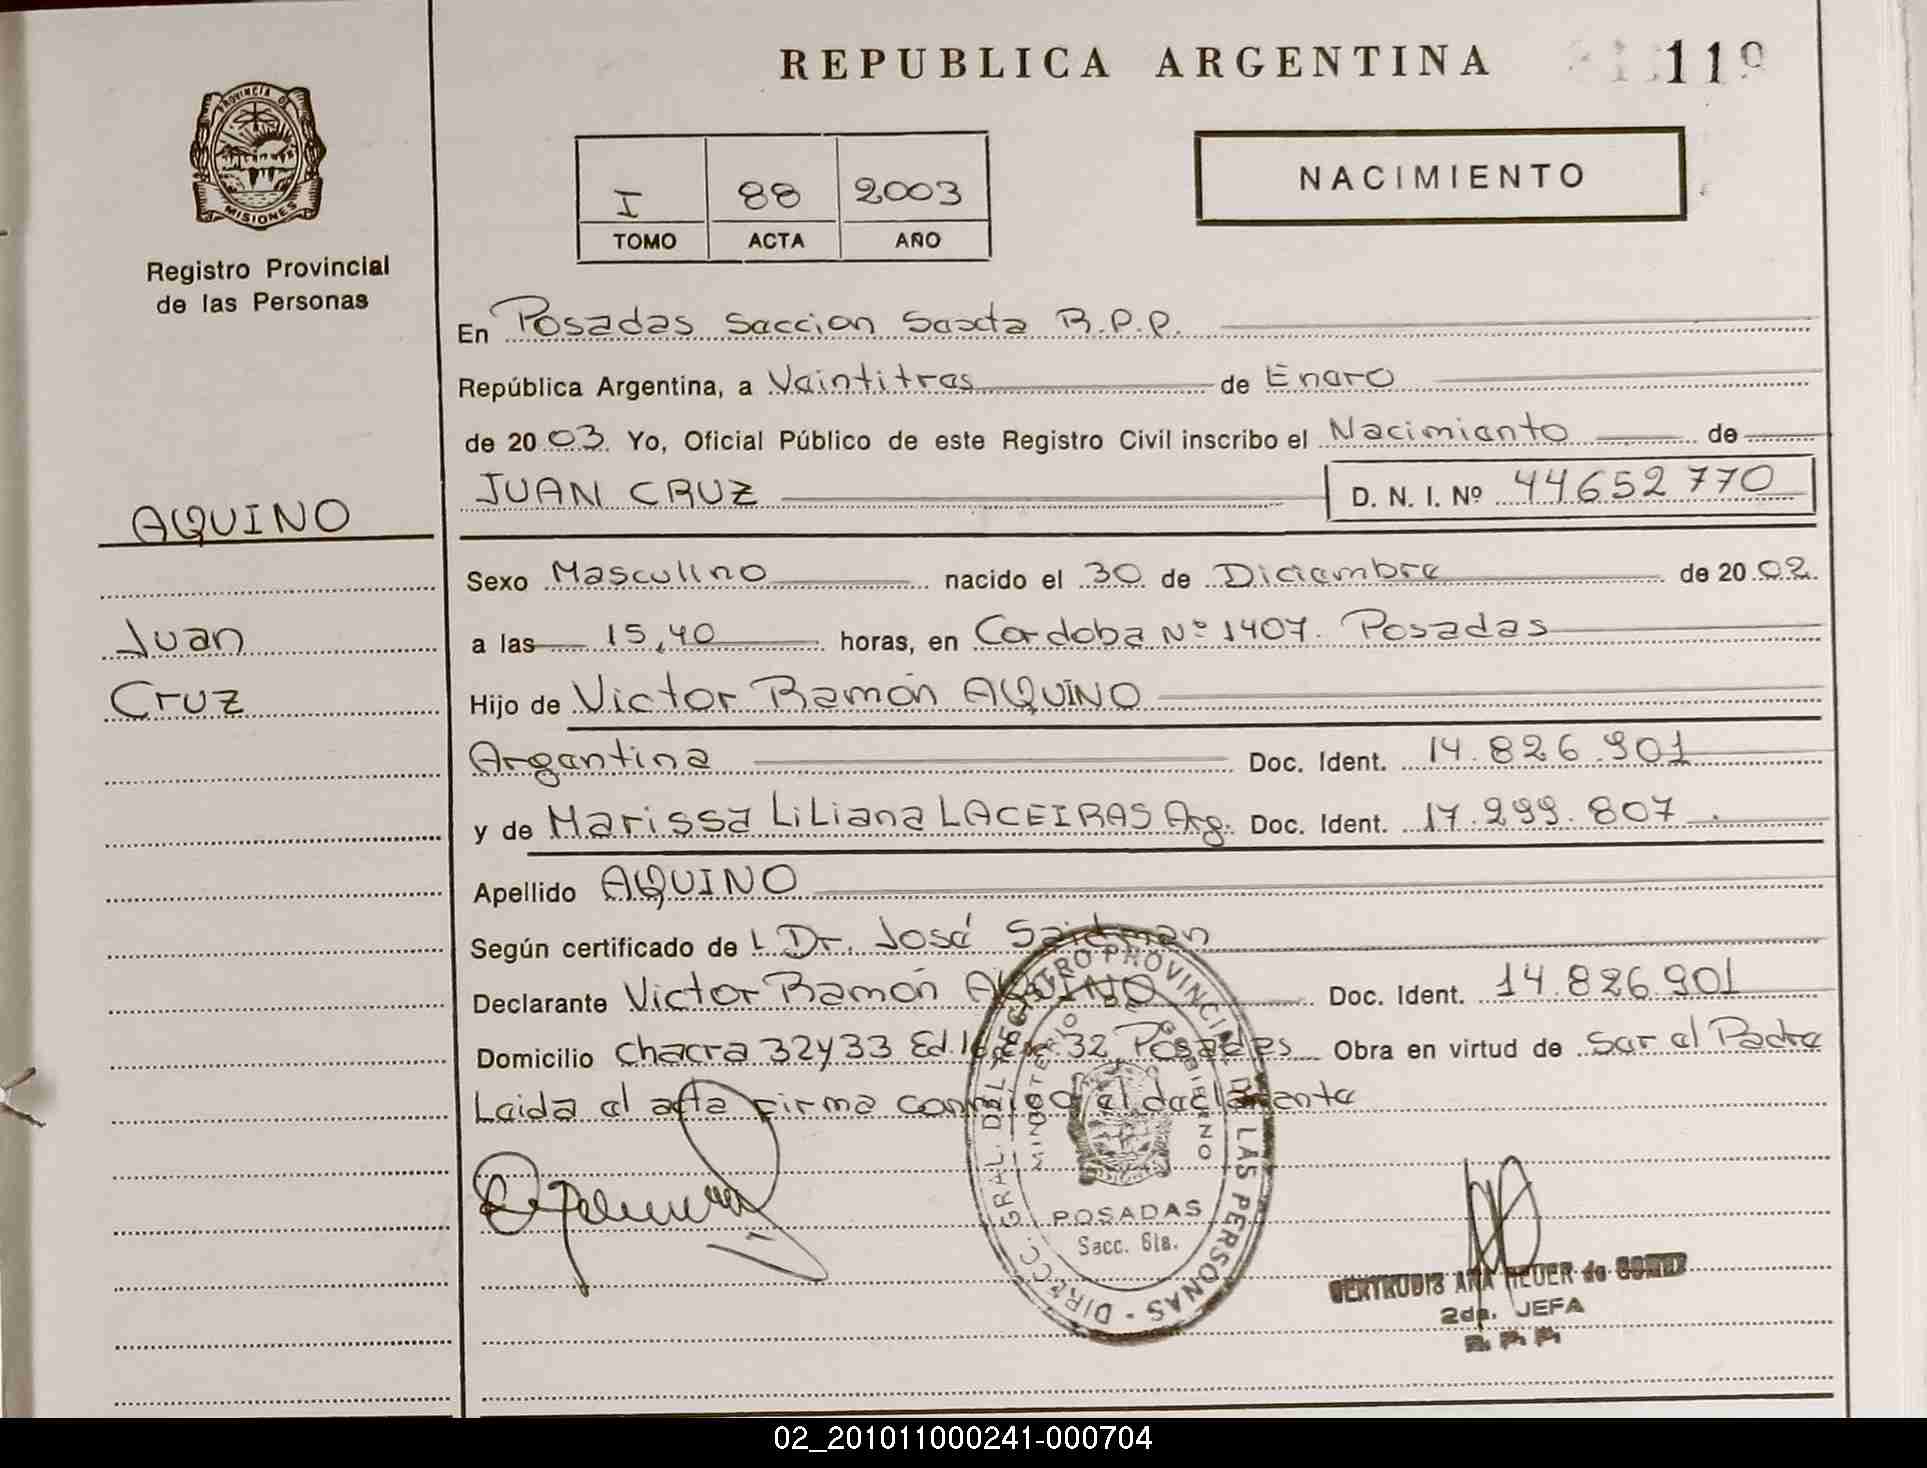 REPUBLICA ARGENTINA
119
PROVINCIA DE
MISIONES
Registro Provincial
de las Personas
I 88 2003
TOMO ACTA AÑO
NACIMIENTO
En Posadas Seccion Sexta R.P.P.
República Argentina, a Veintitres de Enero
de 2003 Yo, Oficial Público de este Registro Civil inscribo el Nacimiento de
JUAN CRUZ D. N. I. Nº 44652770
AQUINO
Sexo Masculino nacido el 30 de Diciembre de 2002.
Juan
a las 15,40 horas, en Cordoba Nº 1407. Posadas
Cruz
Hijo de Victor Ramón AQUINO
Argentina Doc. Ident. 14.826.901
y de Marissa LiLiana LACEIRAS Arg. Doc. Ident. 17.299.807
Apellido AQUINO
Según certificado de L Dr. José Seidman
Declarante Victor Ramón AQUINO Doc. Ident. 14.826.901
Domicilio chacra 32y33 Ed.16 32 Posadas Obra en virtud de Ser el Padre
Leida el acta firma conmigo el declarante
DIRECC. GRAL. DEL REGISTRO PROVINCIAL DE LAS PERSONAS
MINISTERIO GOBIERNO
POSADAS
Secc. 6ta.
GERTRUDIS ANA HEUER de GOMEZ
2da. JEFA
R P P
02_201011000241-000704